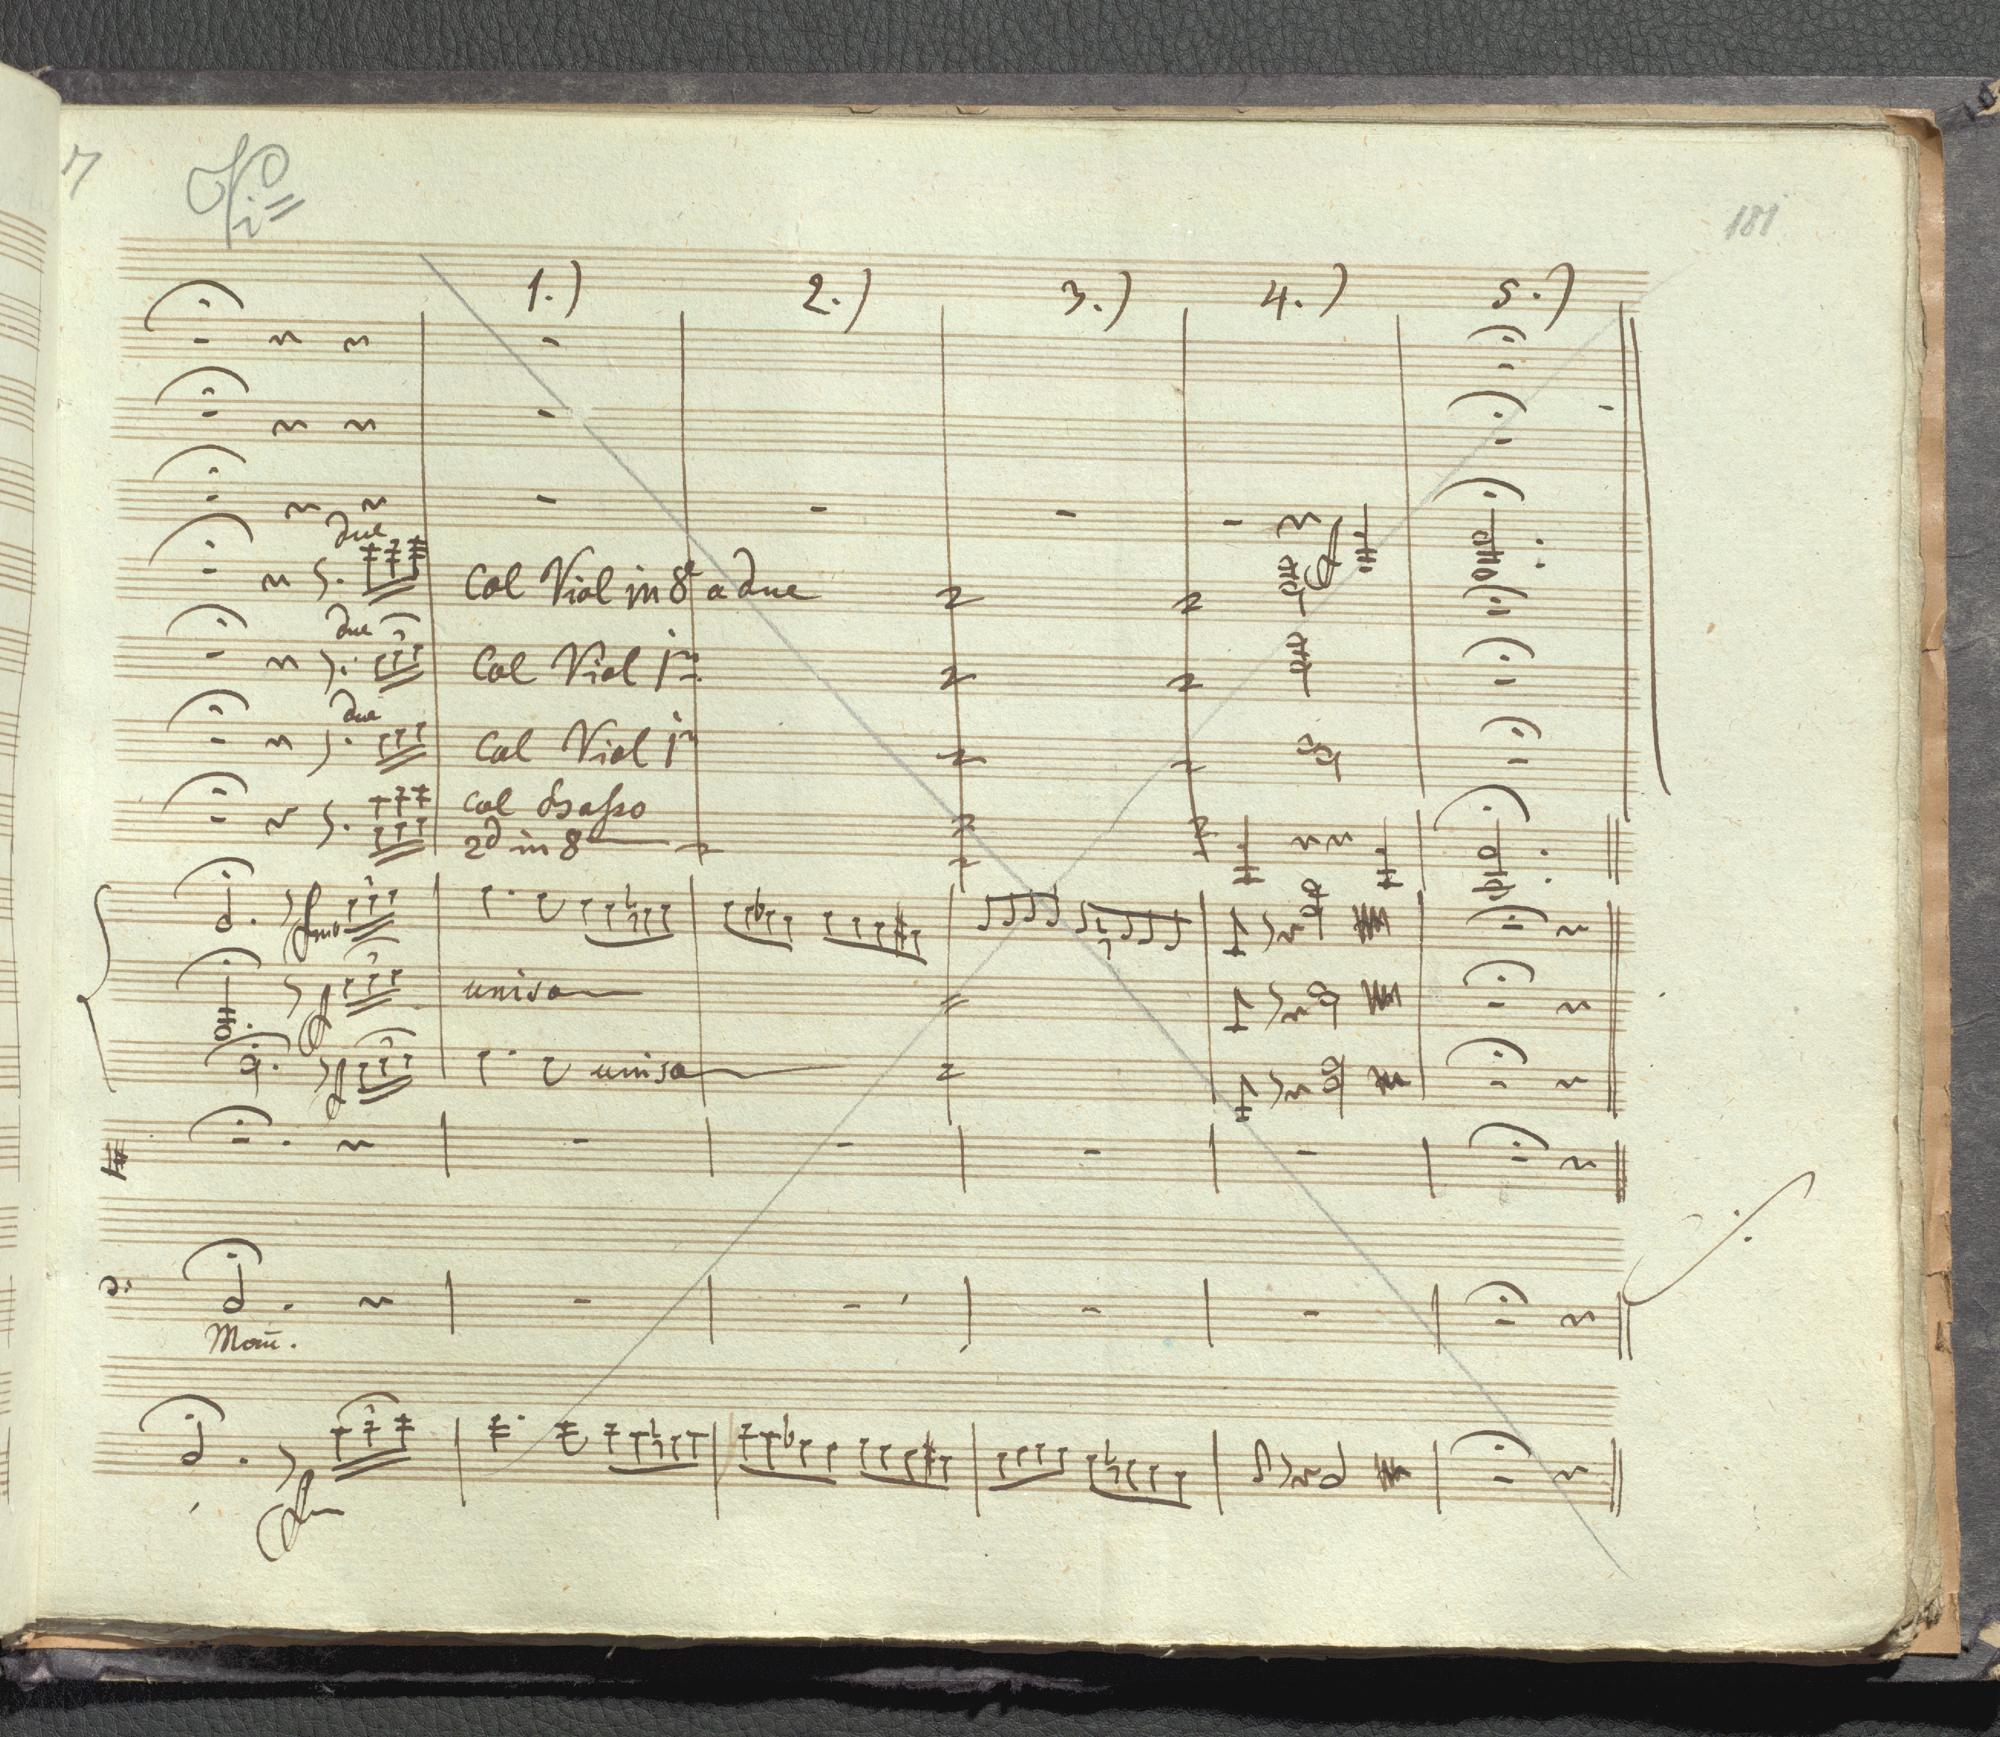 181
1.) 2.) 3.) 4.) 5.)
due
Col Viol in 8e a due
due
Col Viol 1mo
due
Col Viol 1mo
col Basso
2d in 8
uniso
uniso
Mañ.